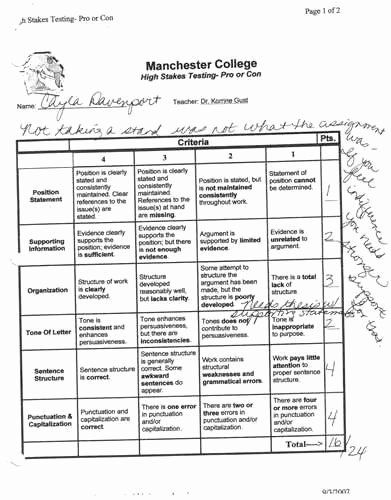 h Stakes Testing- Pro or Con
Page 1 of 2
Manchester College
High Stakes Testing- Pro or Con
Name: Cayla Davenport
Teacher: Dr. Korrine Gust
Not taking a stand was not what the assignment
was. If you feel
indifference
you need
stronger
support
for
Criteria
Pts.
4
3
2
1
Position
Statement
Position is clearly
stated and
consistently
maintained. Clear
references to the
issue(s) are
stated.
Position is clearly
stated and
consistently
maintained.
References to the
issue(s) at hand
are missing.
Position is stated, but
is not maintained
consistently
throughout work.
Statement of
position cannot
be determined.
1
Supporting
Information
Evidence clearly
supports the
position; evidence
is sufficient.
Evidence clearly
supports the
position; but there
is not enough
evidence.
Argument is
supported by limited
evidence.
Evidence is
unrelated to
argument.
2
Organization
Structure of work
is clearly
developed.
Structure
developed
reasonably well,
but lacks clarity.
Some attempt to
structure the
argument has been
made, but the
structure is poorly
developed.
There is a total
lack of
structure.
3
Needs thesis w/
supporting statements
Tone Of Letter
Tone is
consistent and
enhances
persuasiveness.
Tone enhances
persuasiveness,
but there are
inconsistencies.
Tones does not
contribute to
persuasiveness.
Tone is
inappropriate
to purpose.
2
Sentence
Structure
Sentence structure
is correct.
Sentence structure
is generally
correct. Some
awkward
sentences do
appear.
Work contains
structural
weaknesses and
grammatical errors.
Work pays little
attention to
proper sentence
structure.
4
Punctuation &
Capitalization
Punctuation and
capitalization are
correct.
There is one error
in punctuation
and/or
capitalization.
There are two or
three errors in
punctuation and/or
capitalization.
There are four
or more errors
in punctuation
and/or
capitalization.
4
Total----> 16/24
9/3/2007